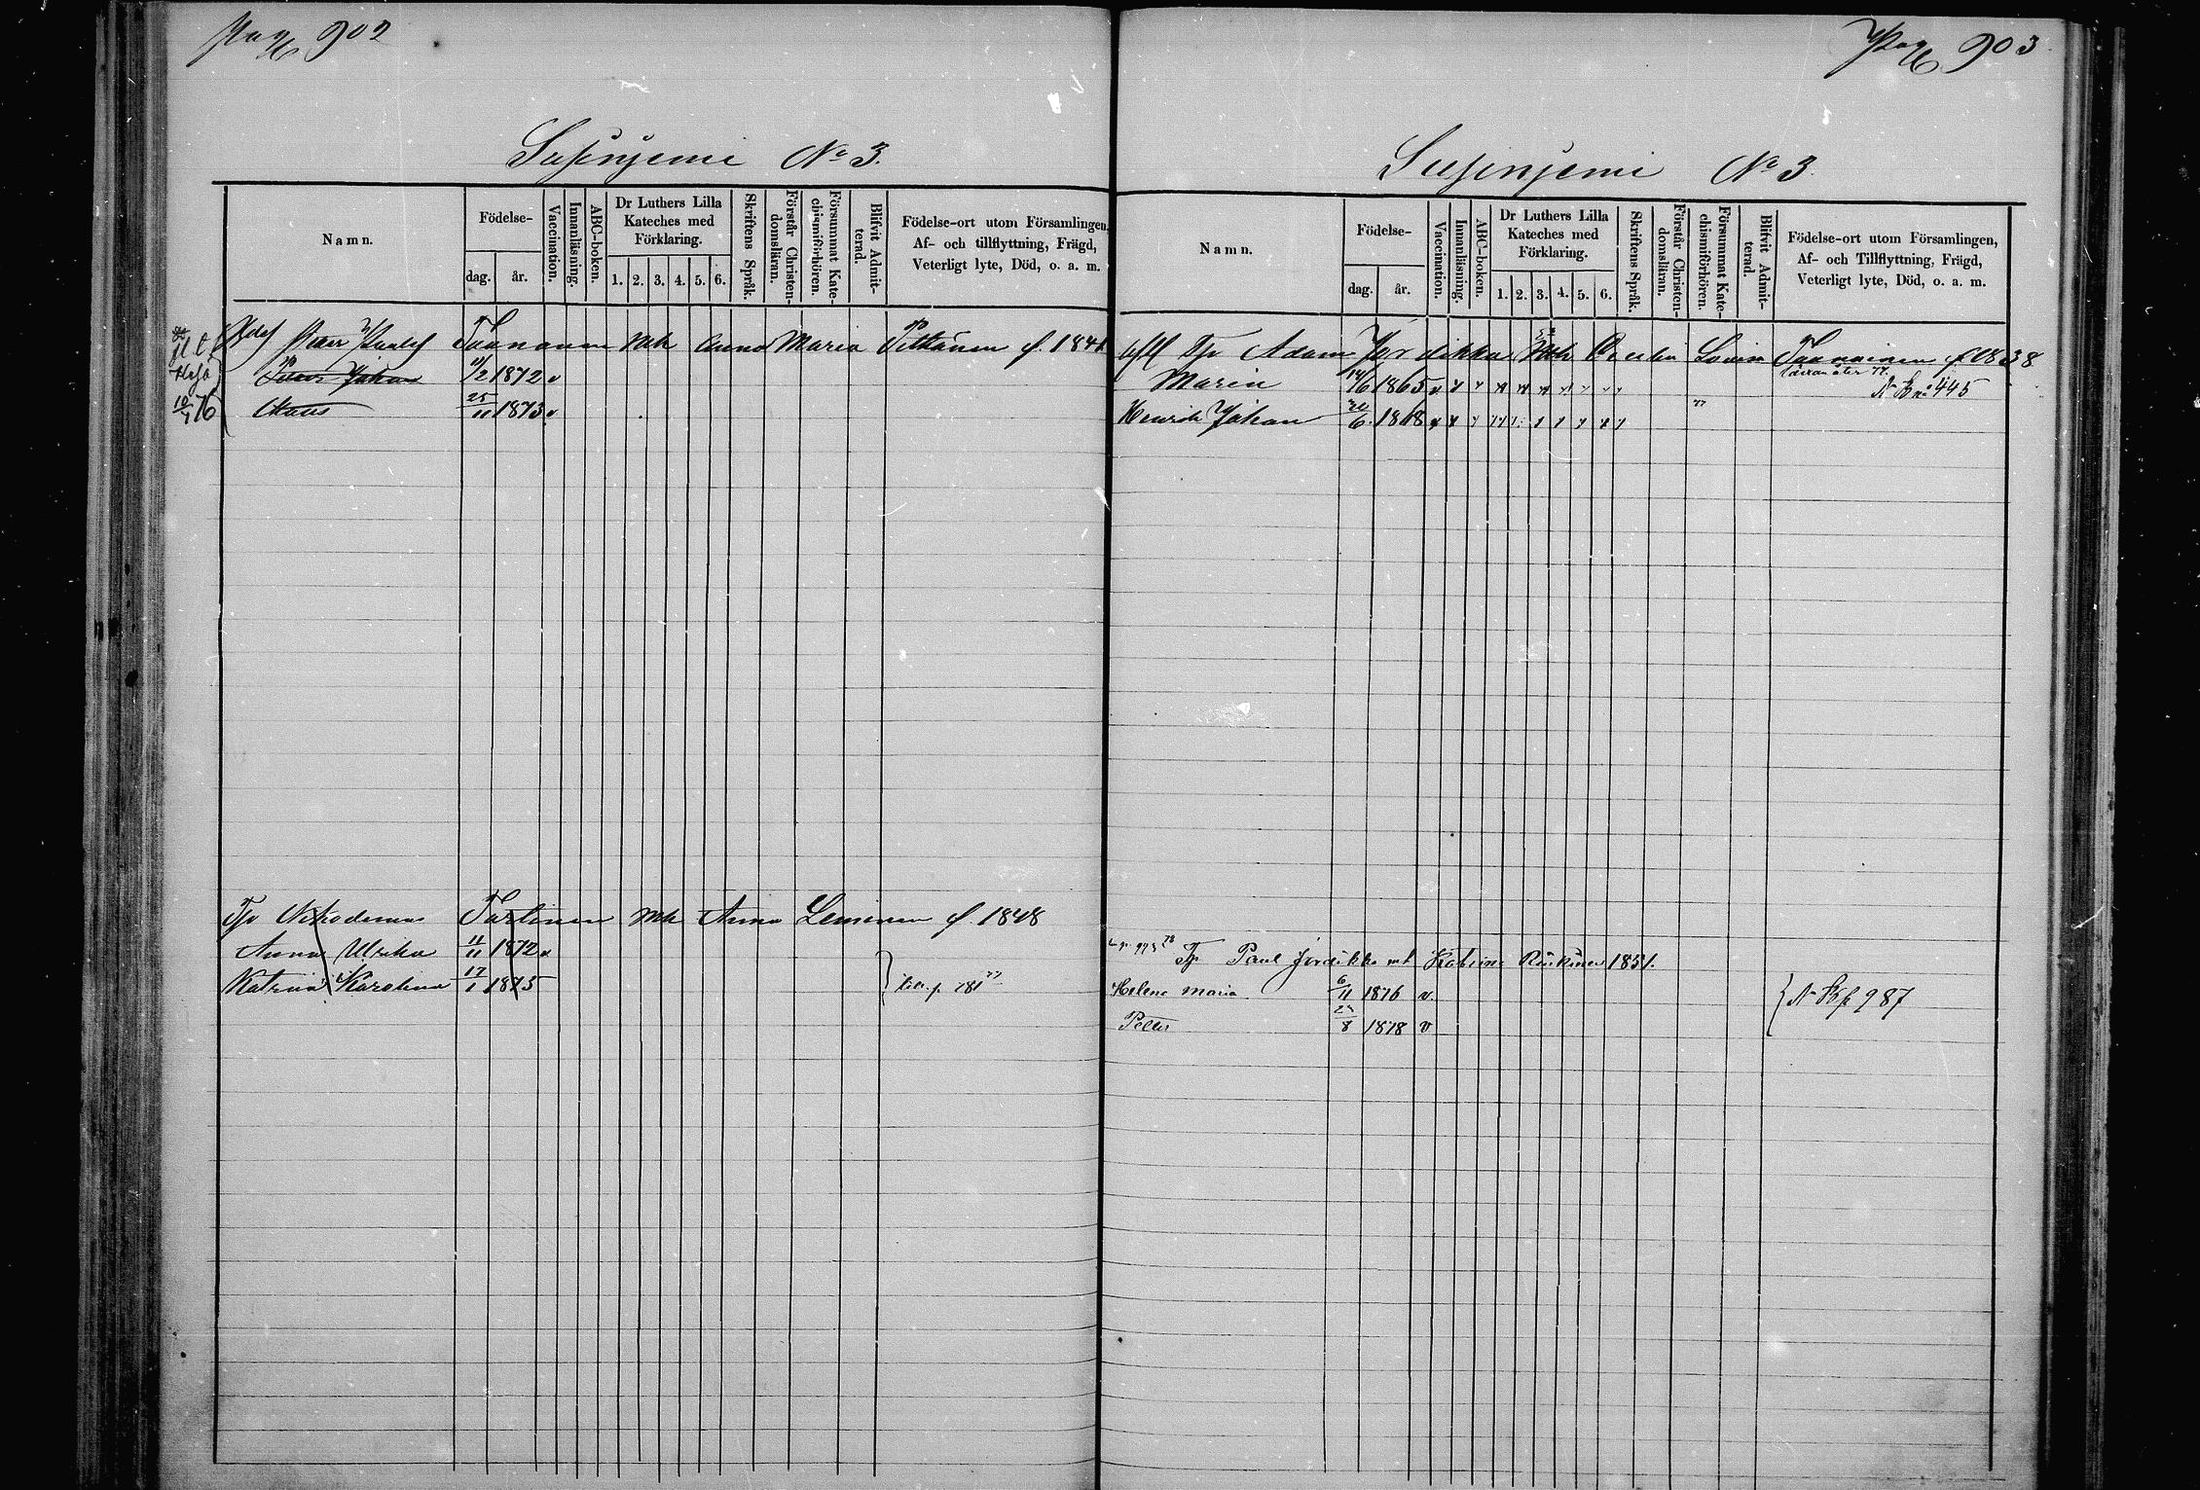 Pag 902
Susinjemi No 3.
Namn.
Födelse-
dag.
år.
Vaccination.
Innanläsning.
ABC-boken.
Dr Luthers Lilla
Kateches med
Förklaring.
1. 2. 3. 4. 5. 6.
Skriftens Språk.
Förstår Christen-
domsläran.
Försummat Kate-
chismiförhören.
Blifvit Admit-
terad.
Födelse-ort utom Församlingen,
Af- och tillflyttning, Frägd,
Veterligt lyte, Död, o. a. m.
Petter Paulss Taananen mh Anna Maria Pittänen f. 1841
Petter Johan 11/2 1872 v
Claus 25/11 1873 v
10/4 76
Tjo Nikodemus Tarlinen mh Anna Leminen f. 1848
Anna Ulrika 11/11 1872 v
Katrina Karolina 17/1 1875
p. 781 77
Pag 903
Susinjemi No 3.
Namn.
Födelse-
dag.
år.
Vaccination.
Innanläsning.
ABC-boken.
Dr Luthers Lilla
Kateches med
Förklaring.
1. 2. 3. 4. 5. 6.
Skriftens Språk.
Förstår Christen-
domsläran.
Försummat Kate-
chismiförhören.
Blifvit Admit-
terad.
Födelse-ort utom Församlingen,
Af- och Tillflyttning, Frägd,
Veterligt lyte, Död, o. a. m.
Tjo Adam Jordikka mh Cecilia Lovisa Taavainen f. 1838
Maria 14/6 1865 v
N B no 445
Henrik Johan 30/6 1868 v
77
78 Tjo Paul Jordikka mh Katrina Riikinen 1851.
Helena Maria 6/11 1876 v.
N B p 987
Petter 27/8 1878 v